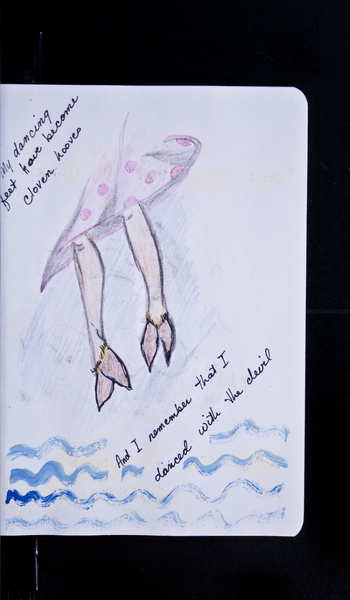 My dancing
feet have become
cloven hooves
And I remember that I
danced with the devil